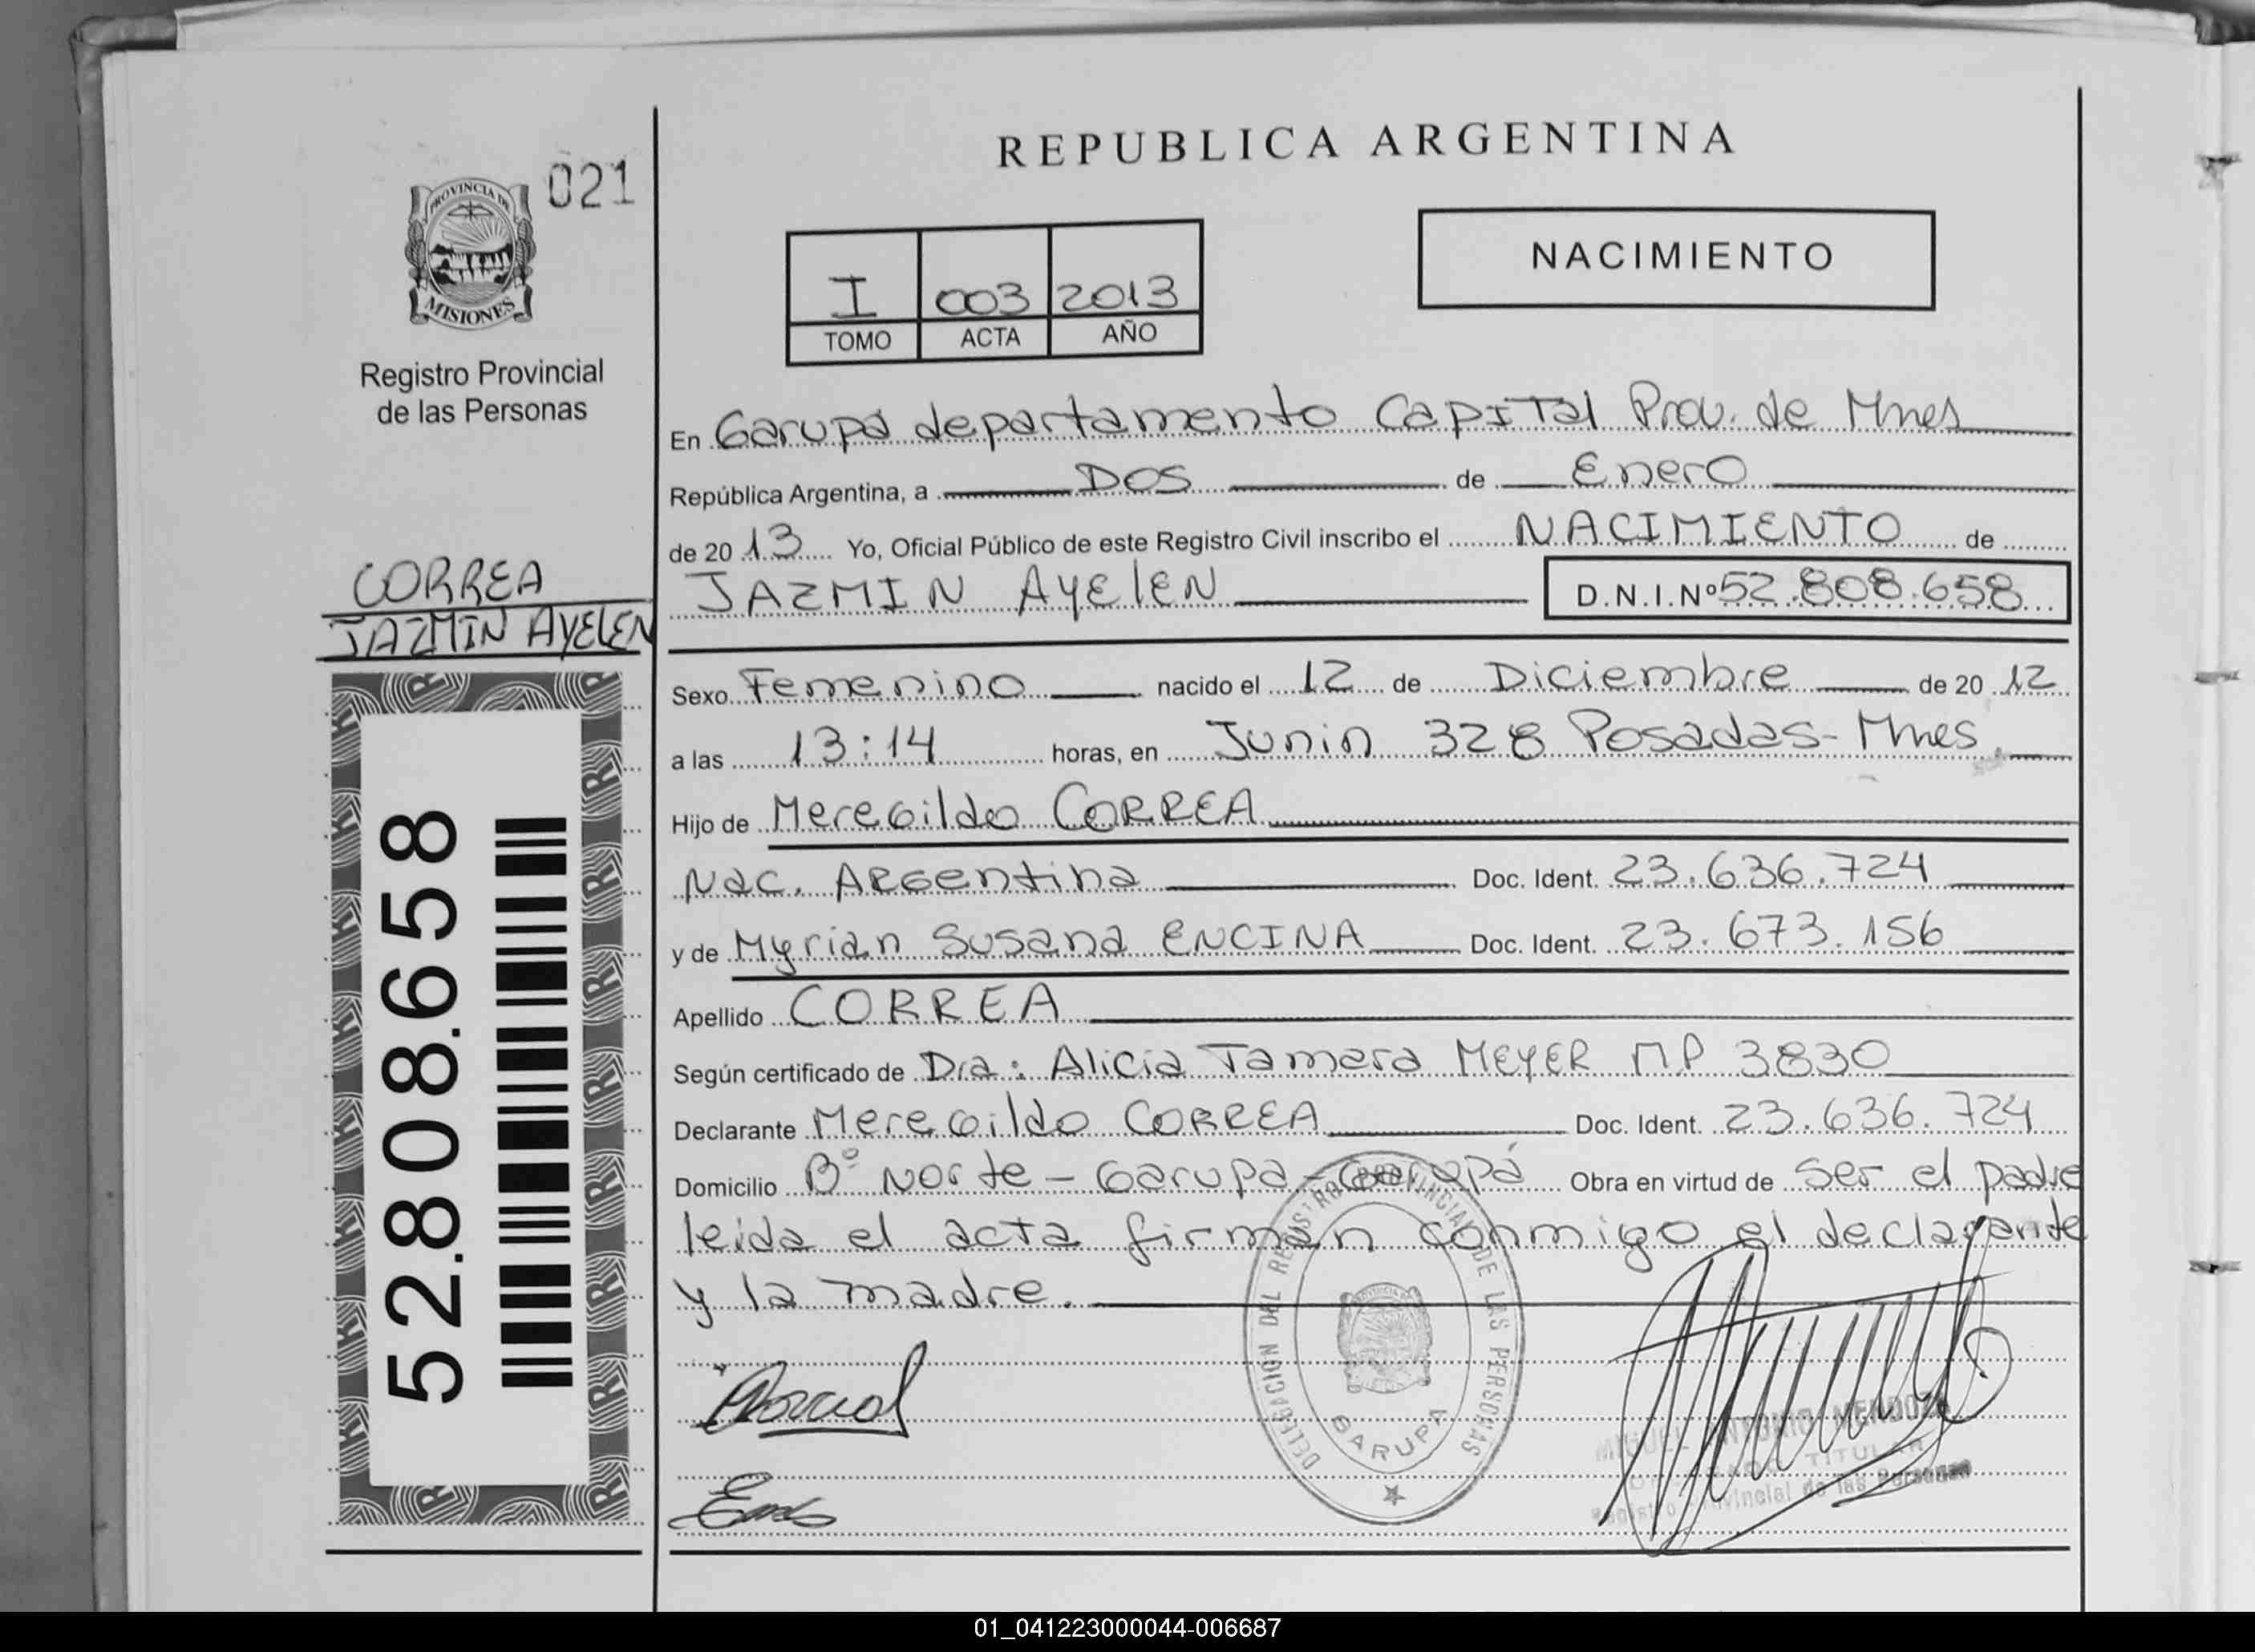 REPUBLICA ARGENTINA
021
PROVINCIA DE
MISIONES
Registro Provincial
de las Personas
I 003 2013
TOMO ACTA AÑO
NACIMIENTO
En Garupá departamento Capital Prov. de Mnes
República Argentina, a Dos de Enero
de 2013 Yo, Oficial Público de este Registro Civil inscribo el NACIMIENTO de
JAZMIN AYELEN D.N.I.Nº 52.808.658
CORREA
JAZMIN AYELEN
Sexo Femenino nacido el 12 de Diciembre de 2012
a las 13:14 horas, en Junin 328 Posadas-Mnes.
Hijo de Meregildo CORREA
Nac. Argentina Doc. Ident. 23.636.724
y de Myrian Susana ENCINA Doc. Ident. 23.673.156
Apellido CORREA
Según certificado de Dra: Alicia Tamara MEYER MP 3830
Declarante Meregildo CORREA Doc. Ident. 23.636.724
Domicilio Bº Norte - Garupa - Garupá Obra en virtud de ser el padre
leida el acta firman conmigo el declarante
y la madre.
52.808.658
DELEGACION DEL REGISTRO PROVINCIAL DE LAS PERSONAS
GARUPA
MIGUEL ANTONIO MENDOZA
TITULAR
Registro Provincial de las Personas
01_041223000044-006687